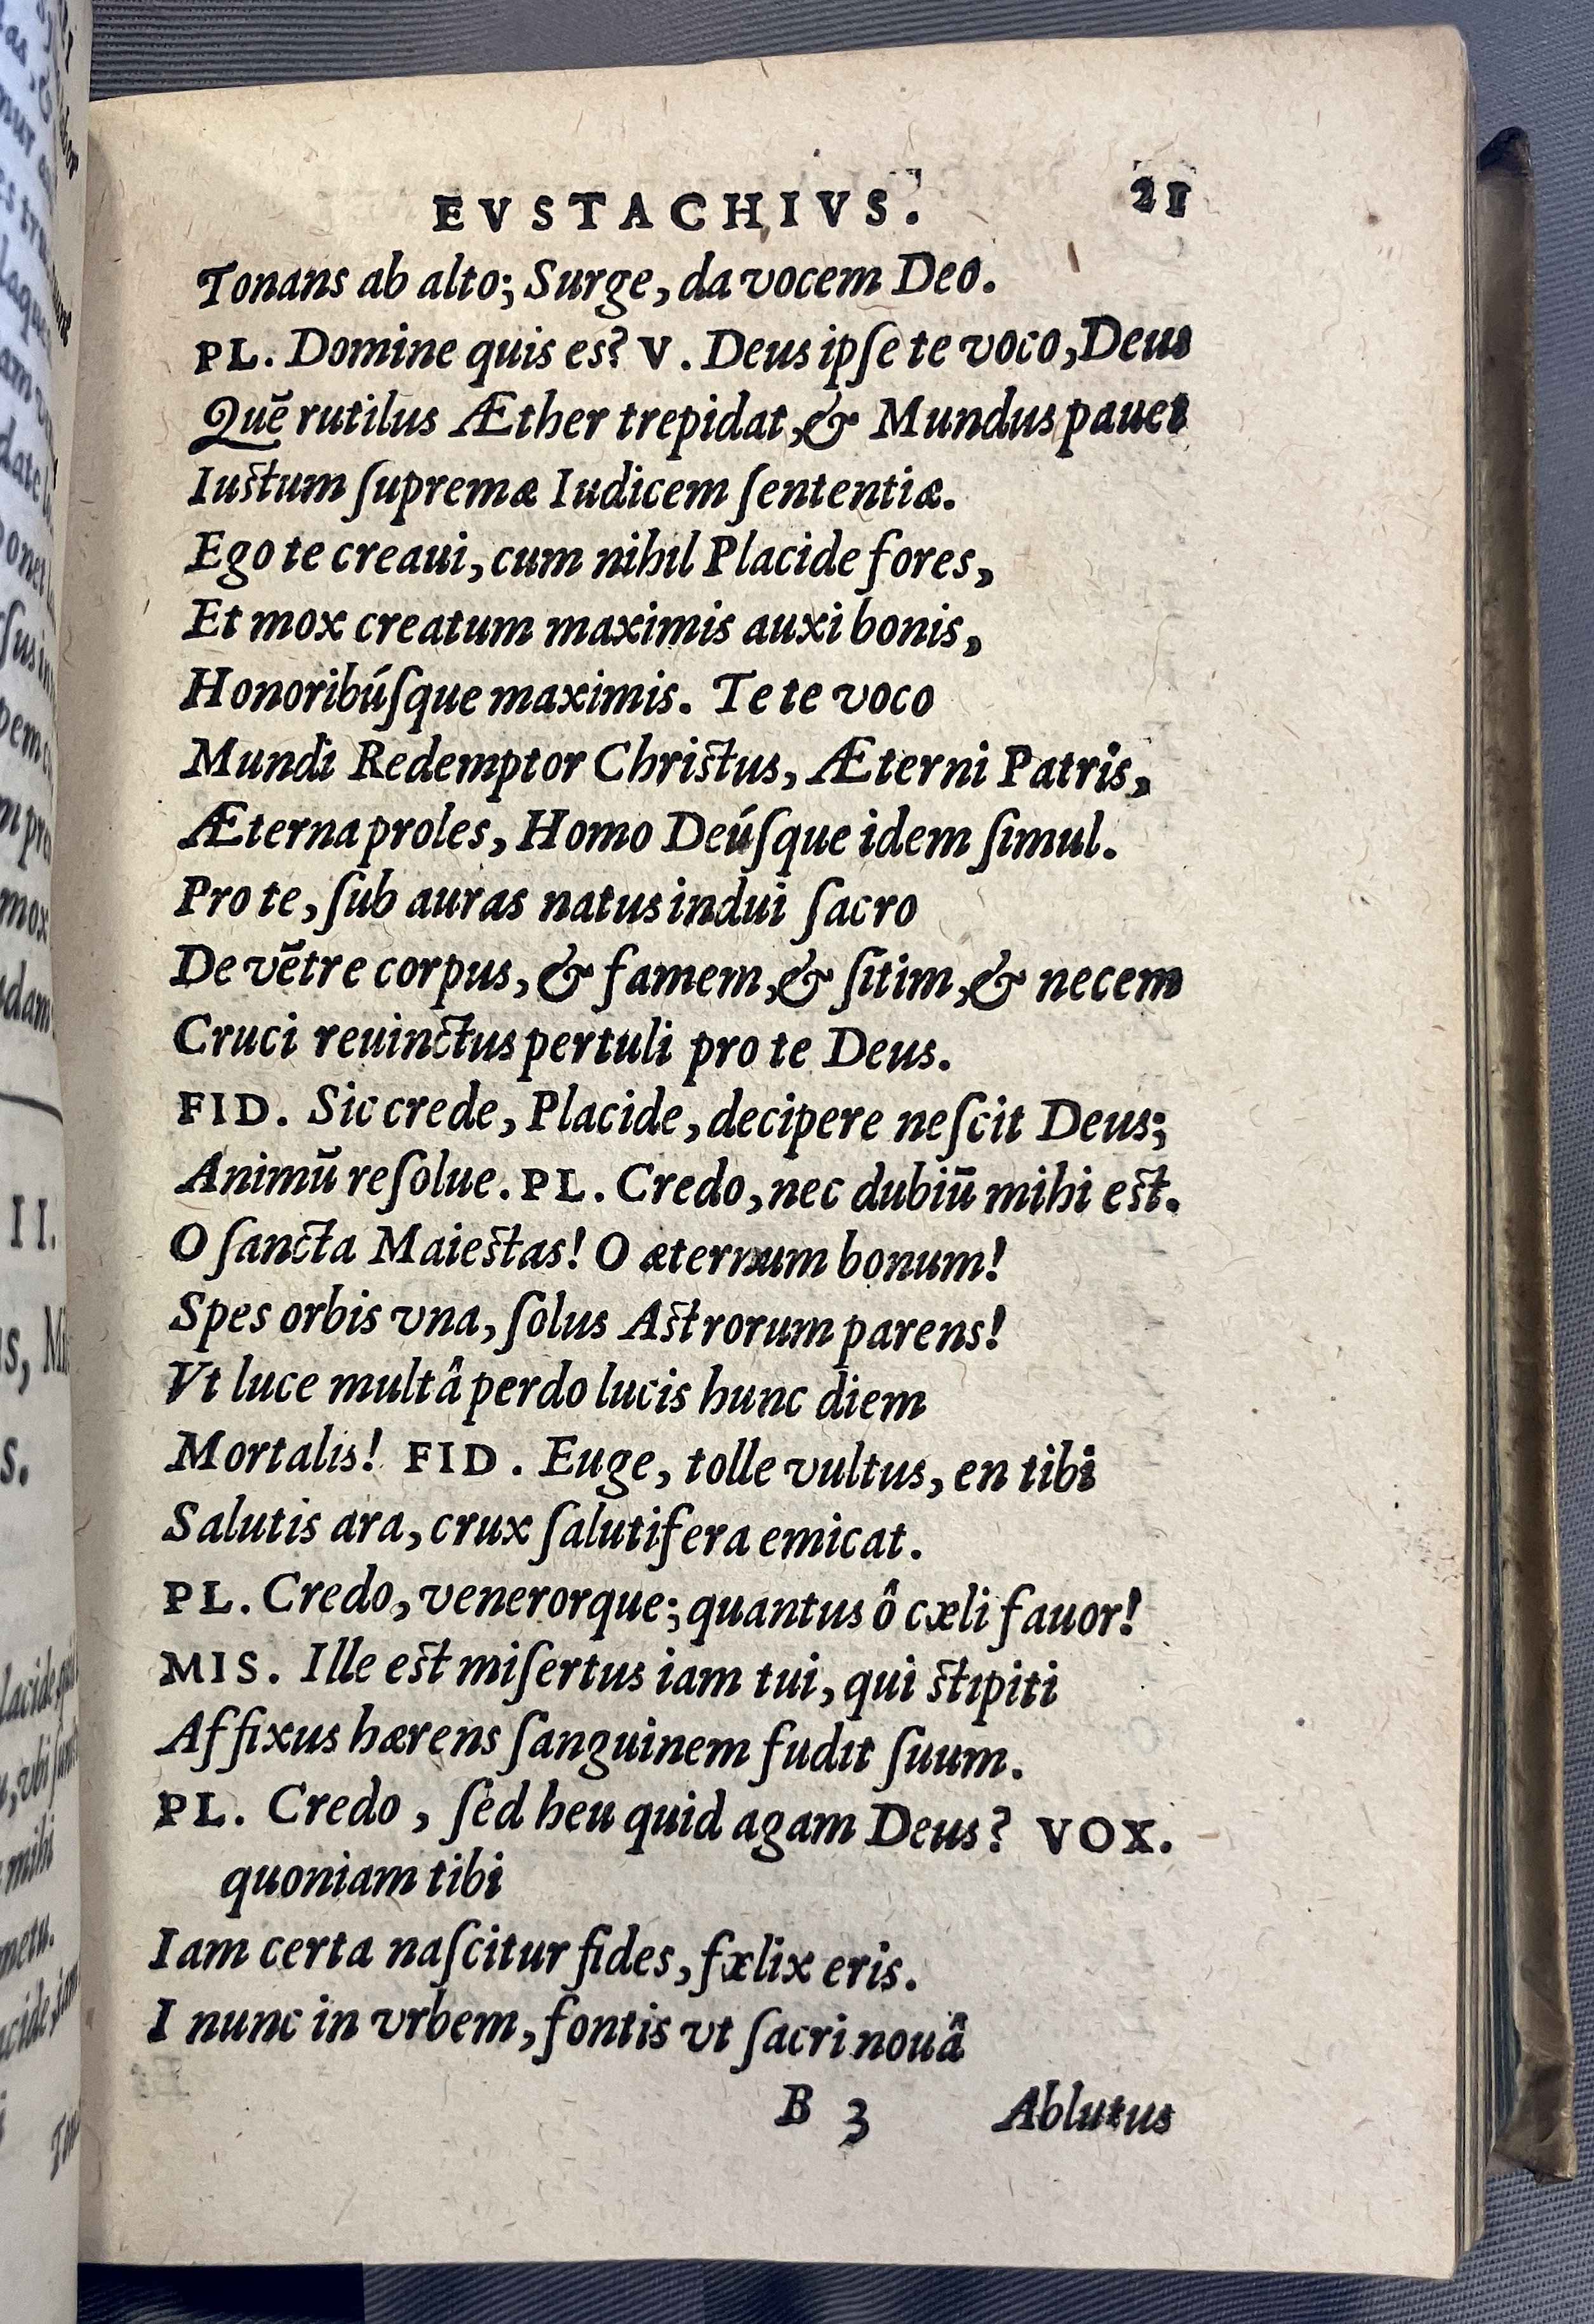 EVSTACHIVS. 21
Tonans ab alto; Surge, da vocem Deo.
PL. Domine quis es? V. Deus ipſe te voco, Deus
Quē rutilus Æther trepidat, & Mundus pauet
Iustum ſupremæ Iudicem ſententiæ.
Ego te creaui, cum nihil Placide fores,
Et mox creatum maximis auxi bonis,
Honoribúſque maximis. Te te voco
Mundi Redemptor Christus, Æterni Patris,
Æterna proles, Homo Deúſque idem ſimul.
Pro te, ſub auras natus indui ſacro
De vētre corpus, & famem, & ſitim, & necem
Cruci reuinctus pertuli pro te Deus.
FID. Sic crede, Placide, decipere neſcit Deus;
Animū reſolue. PL. Credo, nec dubiū mihi est.
O ſancta Maiestas! O æternum bonum!
Spes orbis vna, ſolus Astrorum parens!
Vt luce multâ perdo lucis hunc diem
Mortalis! FID. Euge, tolle vultus, en tibi
Salutis ara, crux ſalutifera emicat.
PL. Credo, venerorque; quantus ô cæli fauor!
MIS. Ille est miſertus iam tui, qui stipiti
Affixus hærens ſanguinem fudit ſuum.
PL. Credo, ſed heu quid agam Deus? VOX.
quoniam tibi
Iam certa naſcitur fides, fælix eris.
I nunc in vrbem, fontis vt ſacri nouâ
B 3 Ablutus